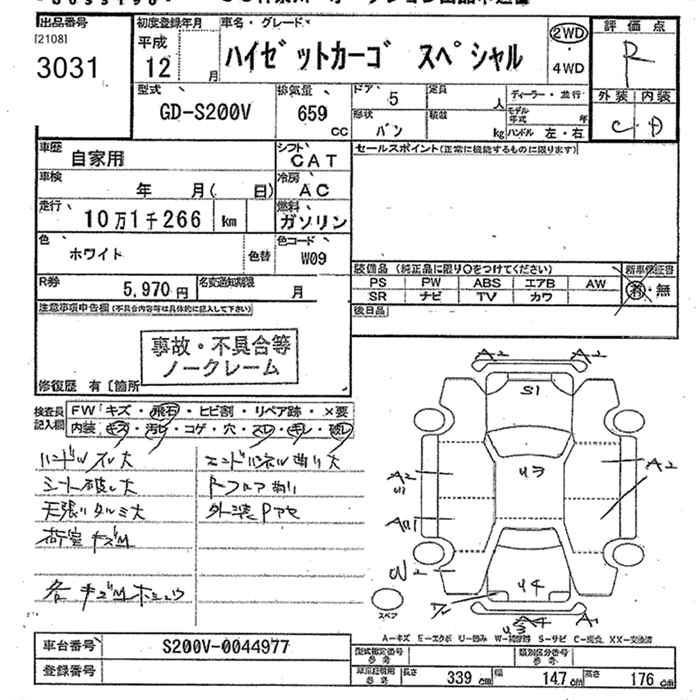 出品番号
[2108]
3031
初度登録年月
平成
12 月
車名・グレード
ハイゼットカーゴ スペシャル
2WD
・
4WD
評価点
R
外装 内装
C D
型式
GD-S200V
排気量
659
cc
ドア 5
定員 人
形状 バン
積載 kg
ディーラー・並行
モデル年式 年
ハンドル 左・右
車歴
自家用
シフト
CAT
セールスポイント(正常に機能するものに限ります)
車検
年 月( 日)
冷房
AC
走行
10万1千266 km
燃料
ガソリン
色
ホワイト
色替
色コード
W09
装備品 (純正品に限り〇をつけてください)
新車保証書
PS PW ABS エアB AW
SR ナビ TV カワ
有・無
R券
5,970円
名変通知期限
月
後日品
注意事項申告欄(不具合内容等は具体的に記入して下さい)
事故・不具合等
ノークレーム
修復歴 有〔箇所
検査員記入欄
FW「キズ・飛石・ヒビ割・リペア跡・×要
内装「キズ・汚レ・コゲ・穴・スレ・キレ・破レ
ハンドルスレ大
シート破レ大
天張りタルミ大
荷室キズM
各キズM
エンドパネル曲り大
外装Pアセ
A2 A2
S1
U3
A2
A2
W2
U4
U3
A4
A1
スペア
A-キズ E-エクボ U-凹み W-補修跡 S-サビ C-腐食 XX-交換済
車台番号
S200V-0044977
登録番号
型式指定番号
参考
類別区分番号
参考
長さ 339 cm 幅 147 cm 高さ 176 cm